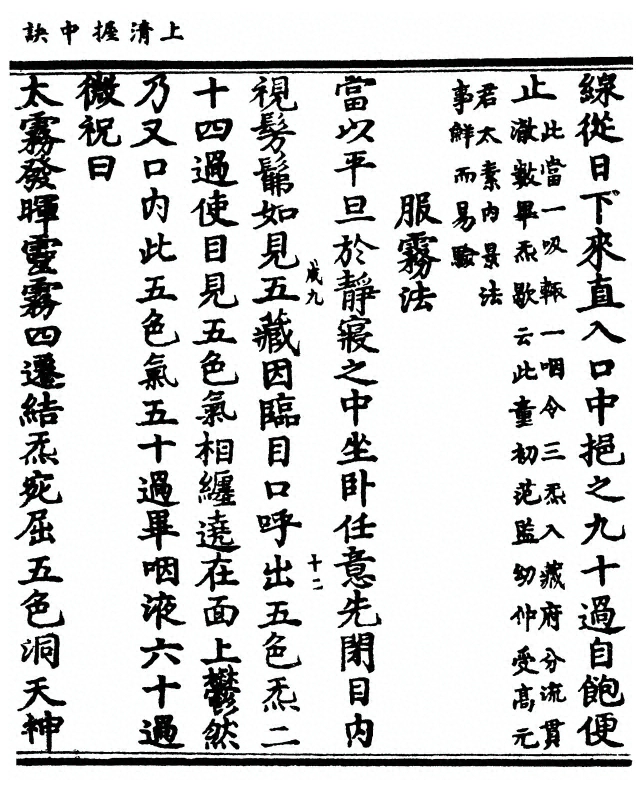 上清握中訣
線從日下來直入口中挹之九十過自飽便
止此當一吸輒一咽令三炁入藏府分流貫
澈數畢炁歇云此童初范監幼仲受高元
君太素內景法
事鮮而易驗
服霧法
當以平旦於靜寢之中坐臥任意先閉目內
咸九
十二
視髣髴如見五藏因臨目口呼出五色炁二
十四過使目見五色氣相纏遶在面上鬱然
乃又口內此五色氣五十過畢咽液六十過
微祝曰
太霧發暉靈霧四遷結炁宛屈五色洞天神